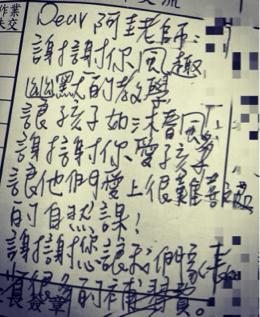 作業
未交
Dear 阿圭老師:
謝謝你風趣
幽默的教學
讓孩子如沐春風!
謝謝你愛孩子
讓他們愛上很難
的自然課!
謝謝您讓我們家長
省很多的補習費。
長簽章